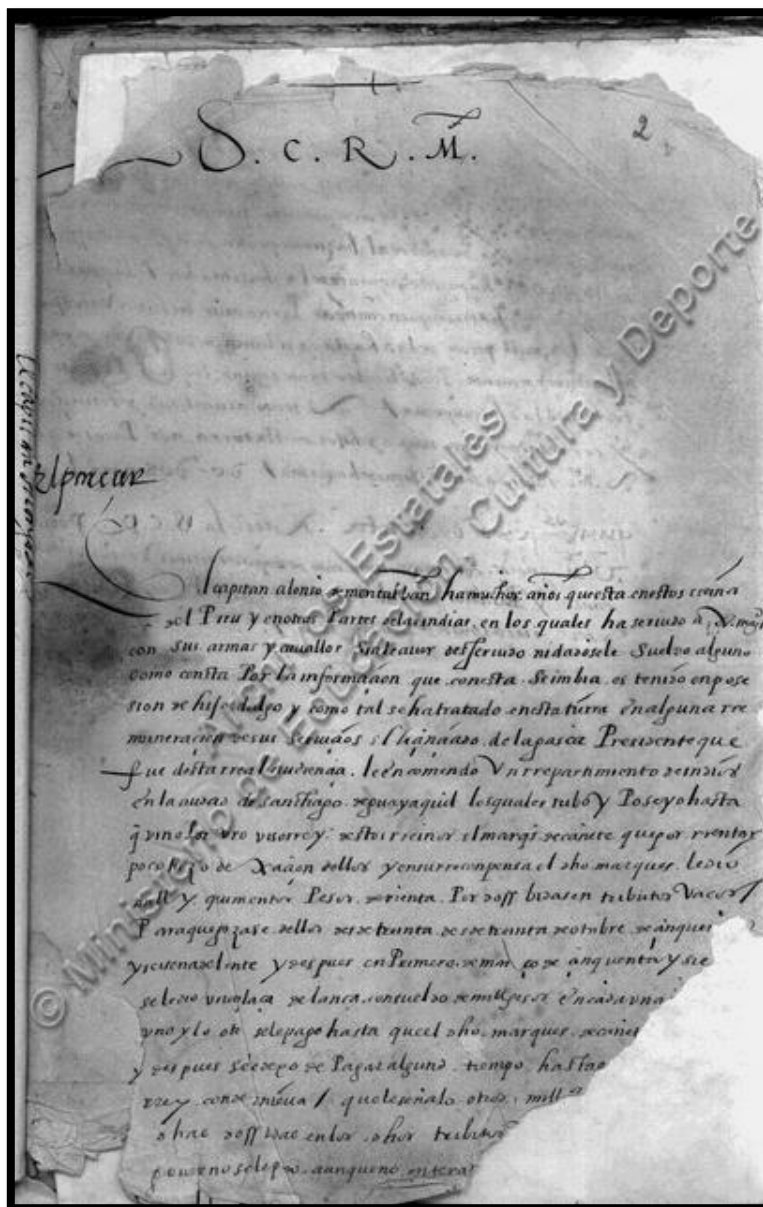 2
S. C. R. M.
El capitan alonso de montalban ha muchos años questa en estos reinos
del Piru y en otras Partes de las indias. en los quales ha seruido a V. mag.
con sus armas y cauallos sin lleuar desseruido ni dadosele Sueldo alguno
como consta Por la informaçion que conesta. Se imbia. es tenido en pose
sion de hijodalgo y como tal se ha tratado enesta tierra En alguna rre
muneracion de sus seruiçios el liçençiado. de la gasca Presidente que
fue desta rreal audiençia. le encomendo Vn rrepartimiento de indios
en la ciudad de santhiago. de guayaquil los quales tubo y Poseyo hasta
q vino por vro visorrey. destos rreinos el marqs. de cañete que por rrentar
poco hizo de xaçion dellos y en su rreconpensa el dho marques. le dio
mill y quinientos Pesos. de rrenta. Por doss bidas en tributos Vacos /
Para que gozase. dellos desde treinta. desde treinta de otubre. de çinque
y seis en adelante y despues en Primero. de março de çinquenta y sie
se le dio vna plaça de lança. con sueldo de mill pesos en cada vna
vno y lo otro se le pago hasta que el dho. marques. de cañet
y despues se dexo de Pagar algund. tiempo. hasta
rrey. conde de nieua / que le señalo otros. mill
dhas doss bidas en los. dhos tributos
se le pago. aunque no entera
© Ministerio de Educación Cultura y Deporte
Archivos Estatales